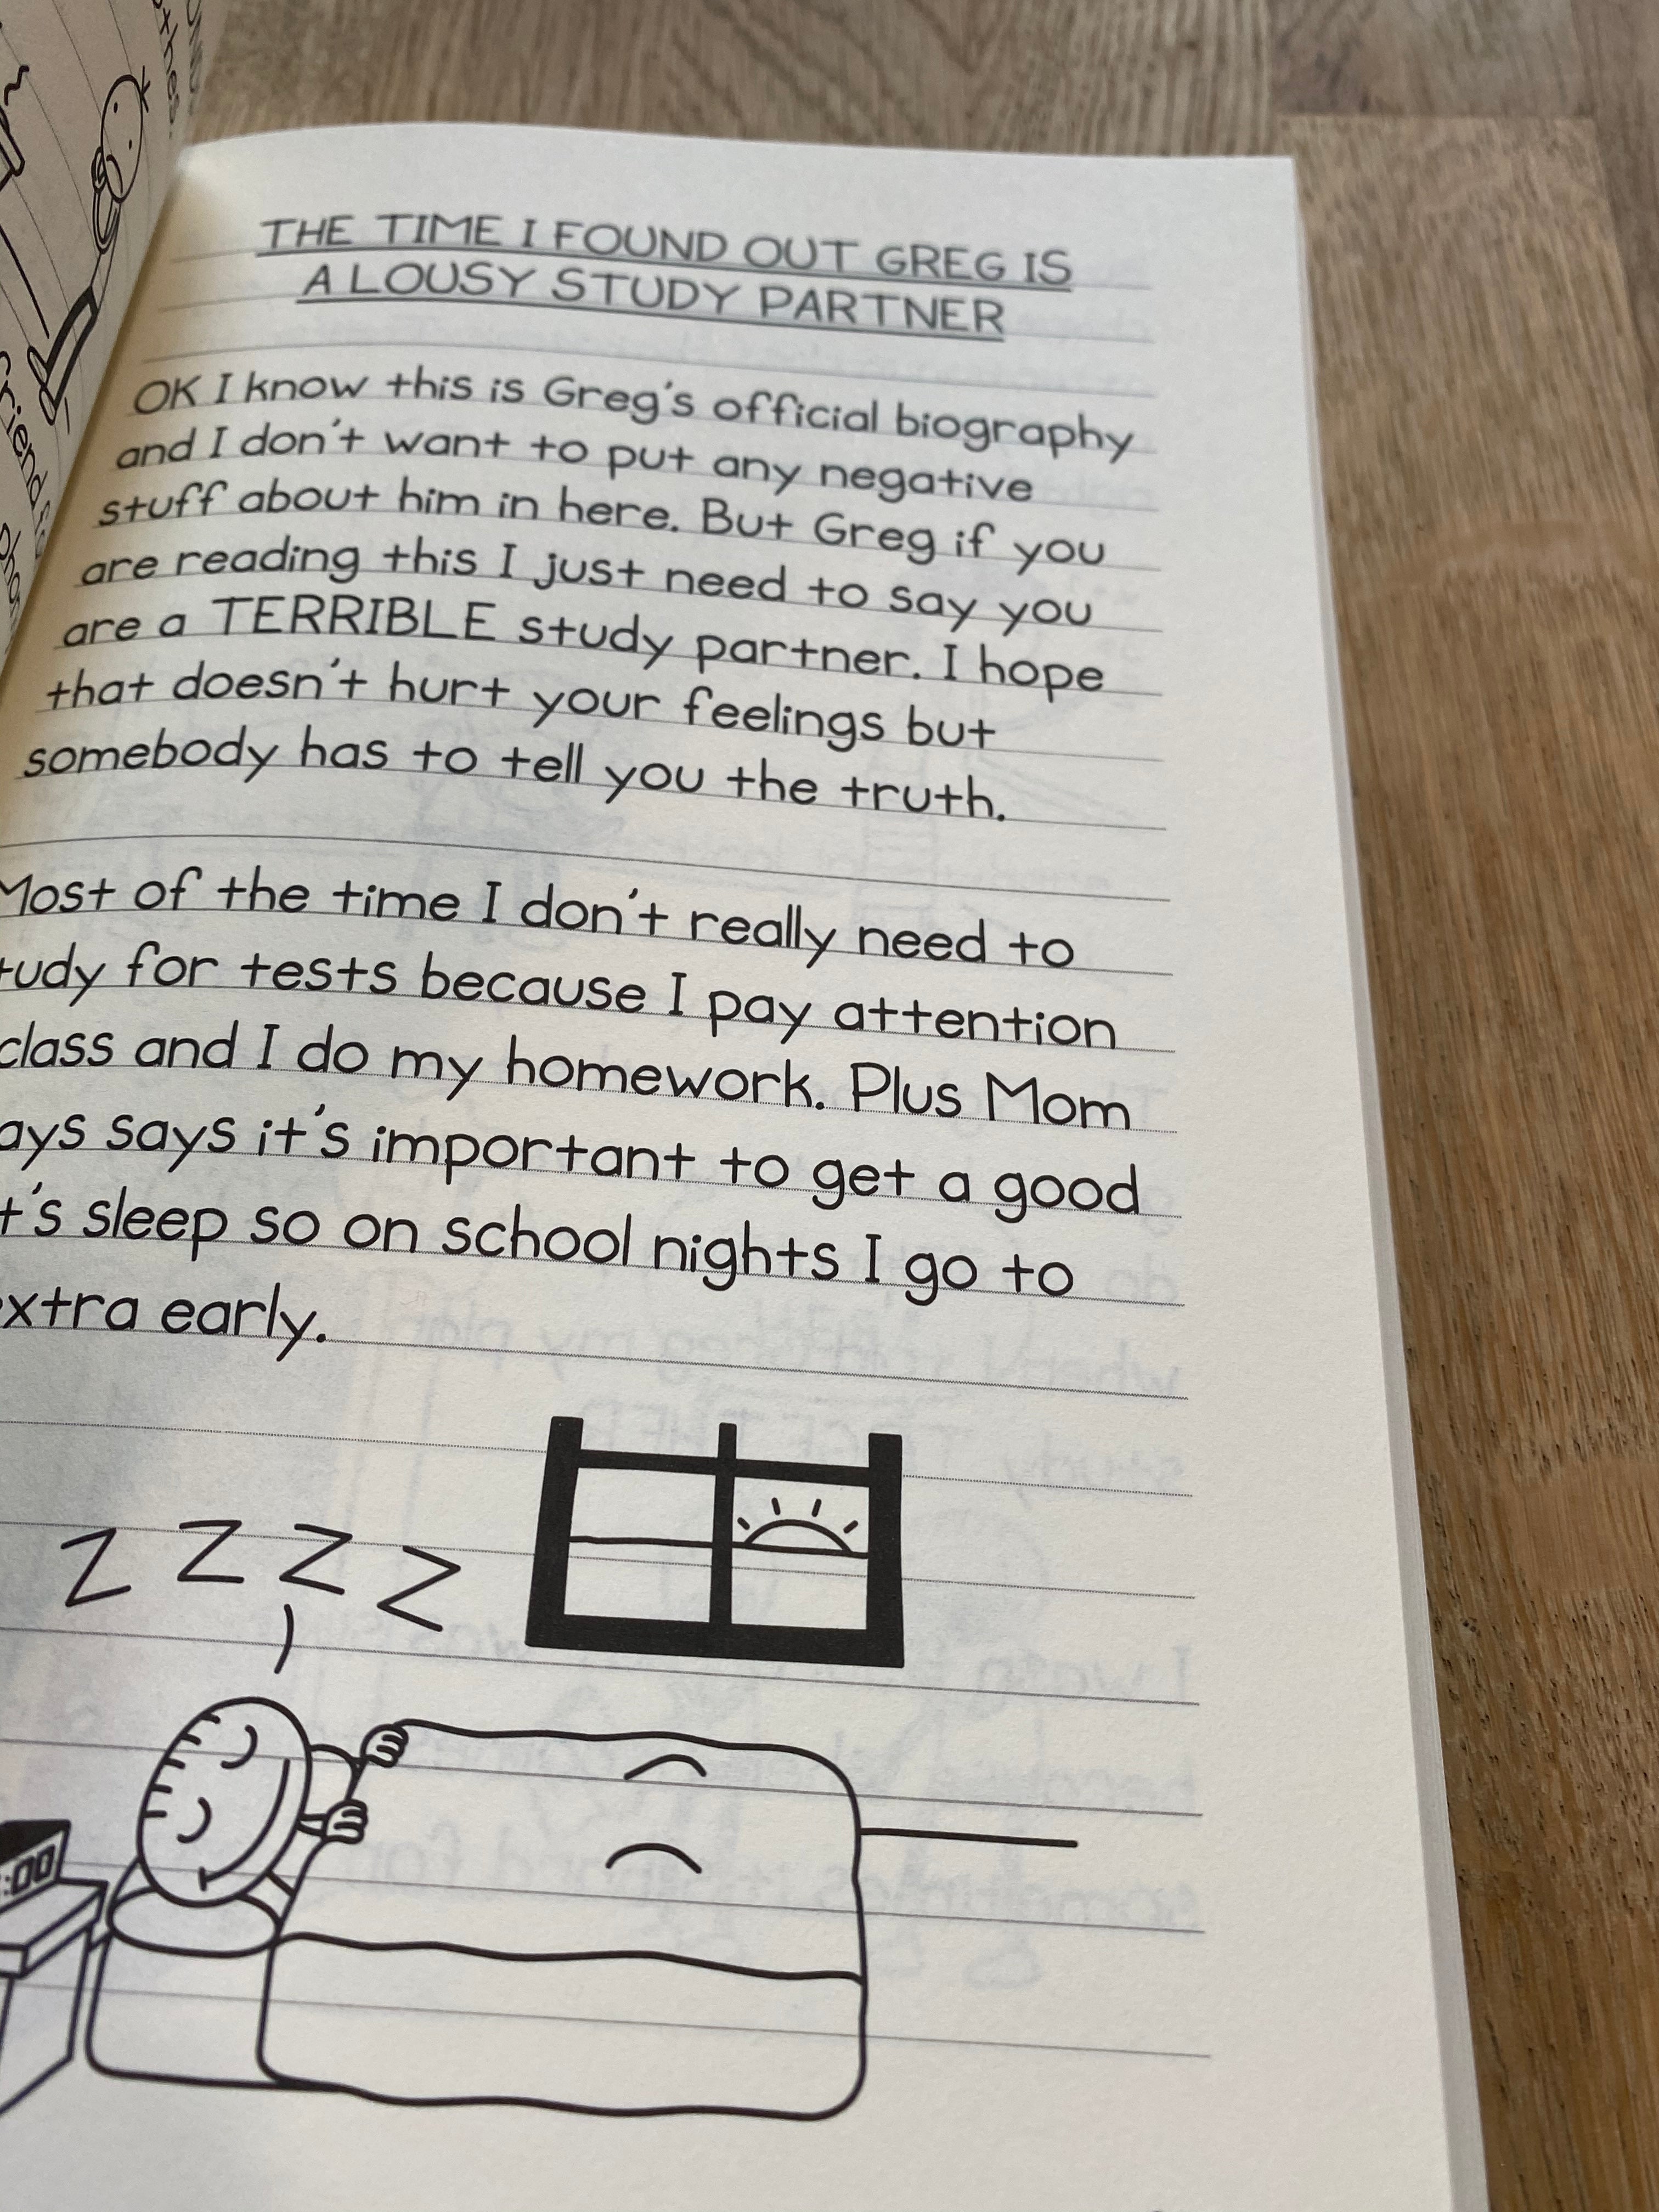 THE TIME I FOUND OUT GREG IS
A LOUSY STUDY PARTNER
OK I know this is Greg's official biography
and I don't want to put any negative
stuff about him in here. But Greg if you
are reading this I just need to say you
are a TERRIBLE study partner. I hope
that doesn't hurt your feelings but
somebody has to tell you the truth.
Most of the time I don't really need to
tudy for tests because I pay attention
class and I do my homework. Plus Mom
ays says it's important to get a good
t's sleep so on school nights I go to
xtra early.
Z Z Z Z
:00